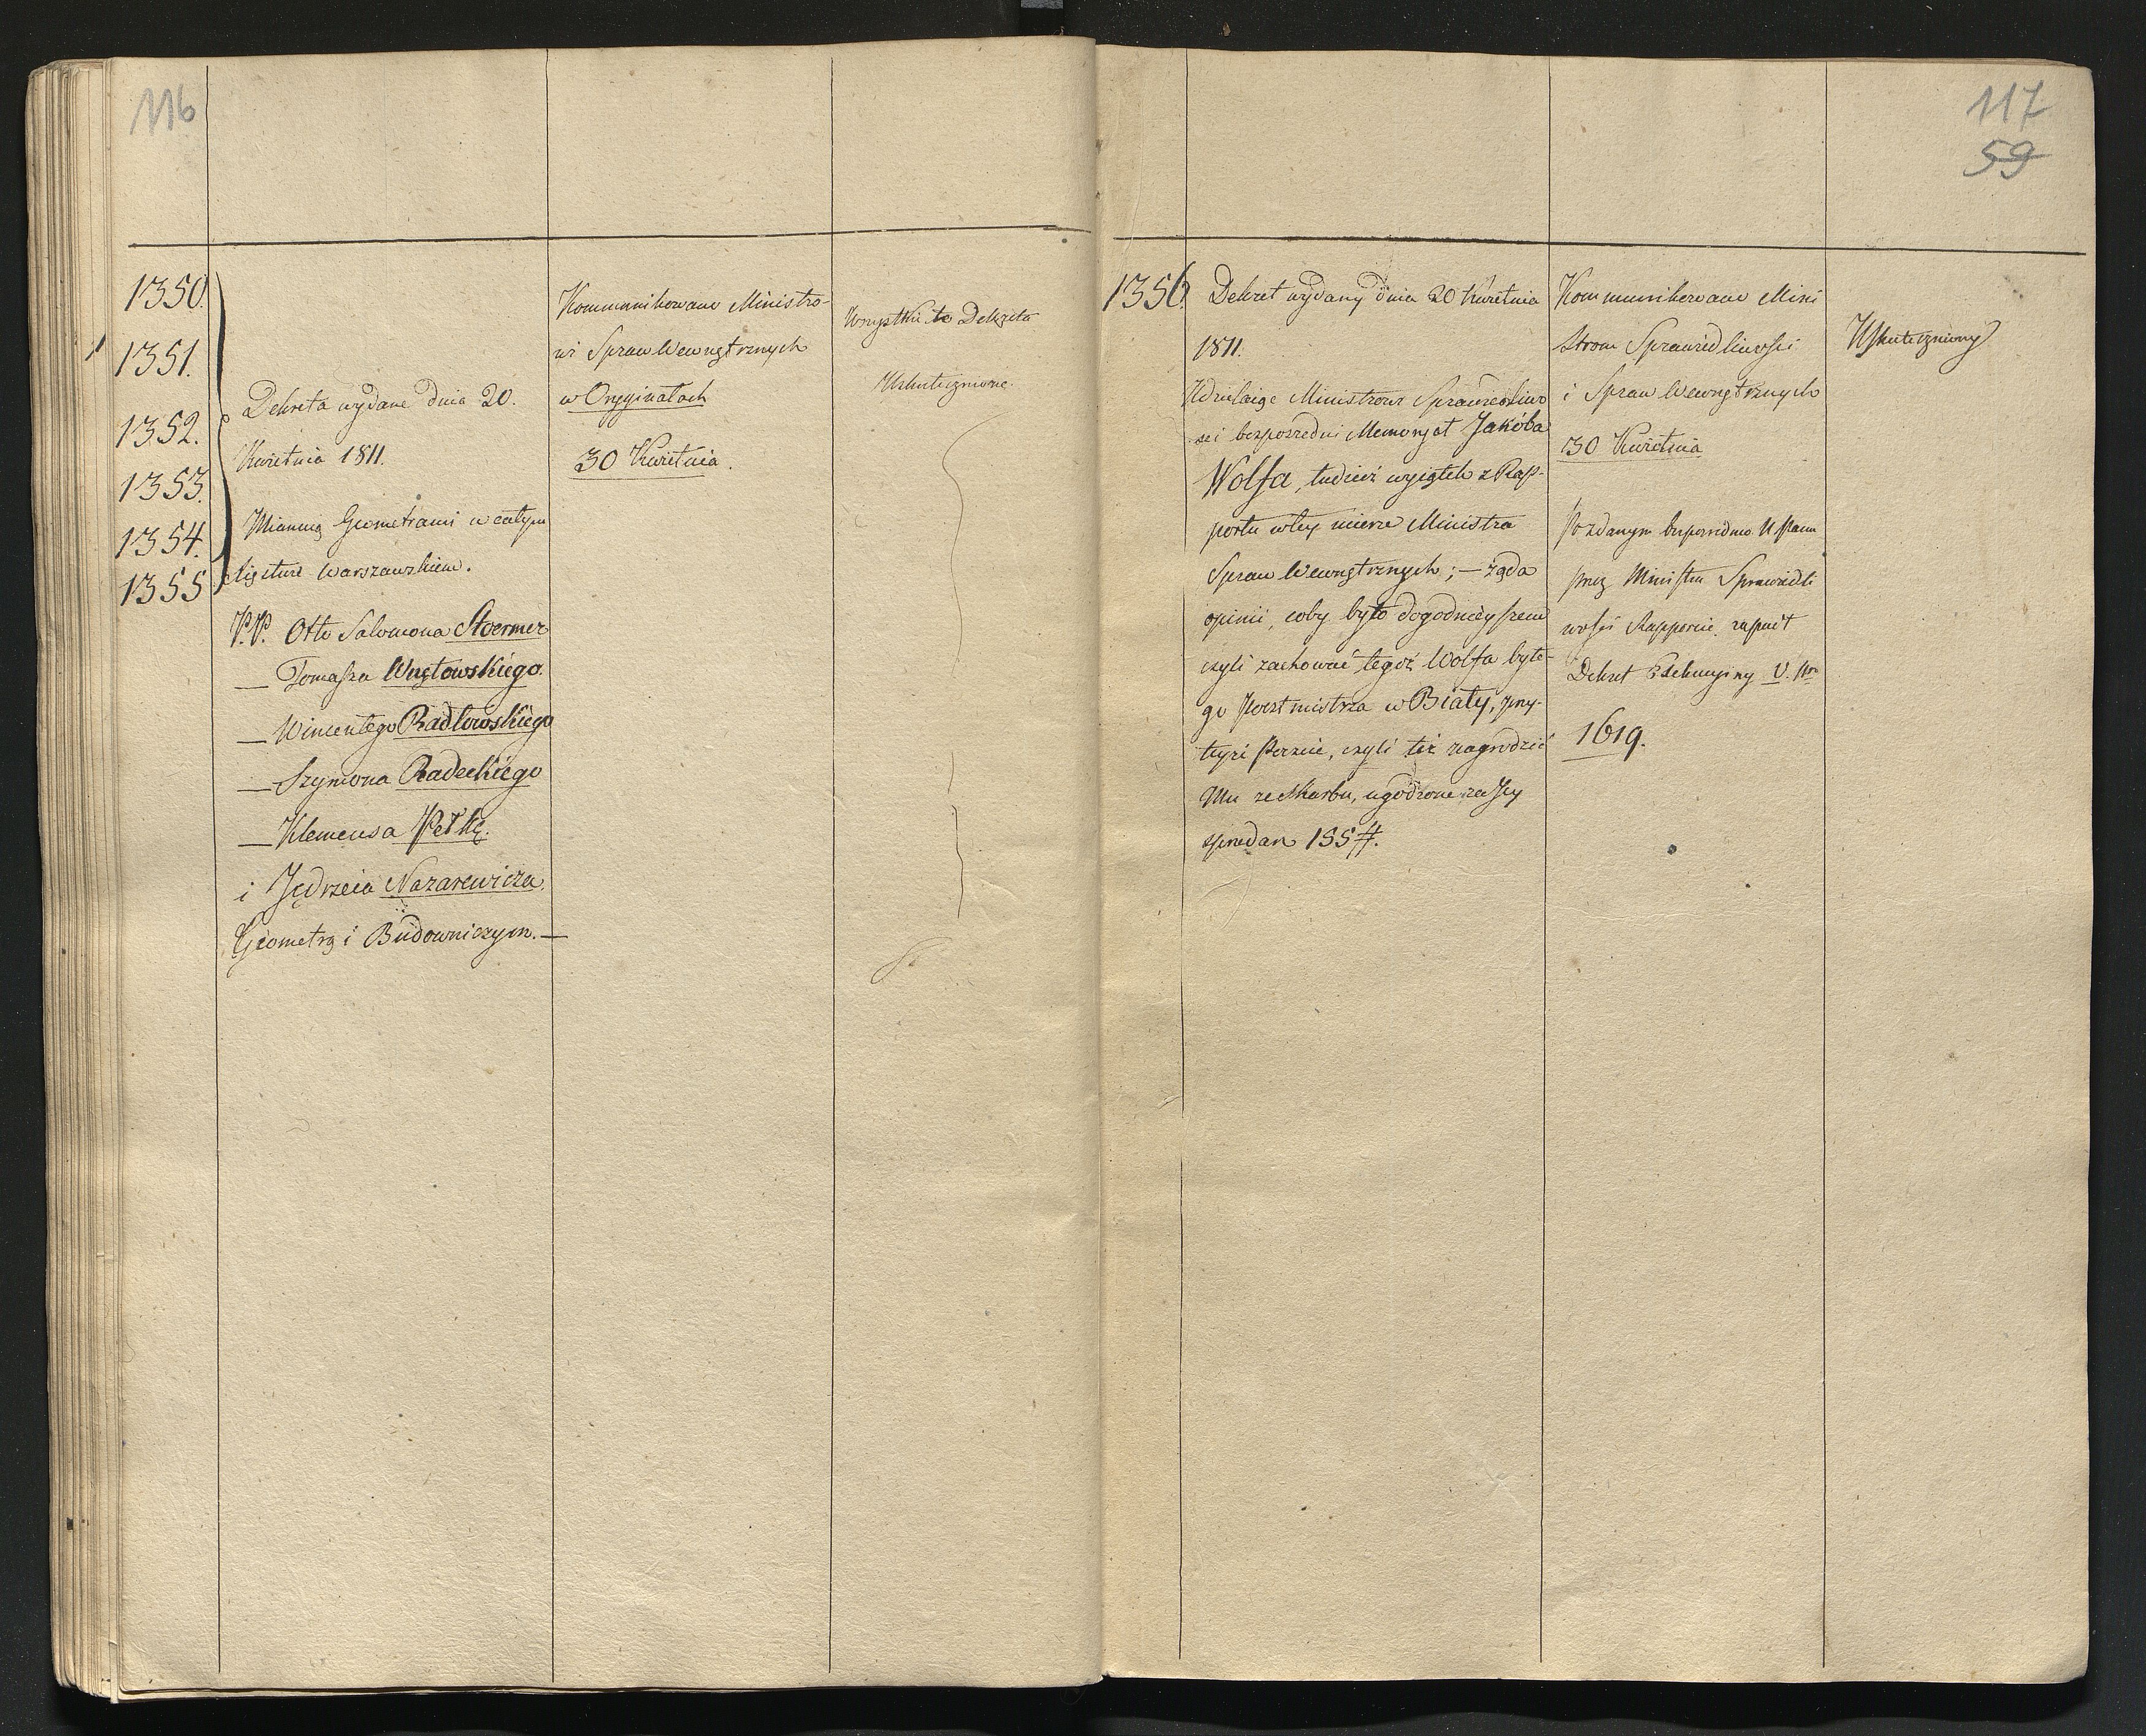 116
1350.
1351.
1352.
1353.
1354.
1355
Dekreta wydane dnia 20.
Kwietnia 1811.
Mianuią Geometrami w całym
Xięstwie Warszawskiem.
PP. Otto Salomona Stoermer
— Tomasza
— Wincentego Radłowskiego
— Szymona Radeckiego
— Klemensa Petkę.
i Jędrzeia Nazarewicza
Geometrą i Budowniczym. —
Kommunikowane Ministro-
wi Spraw Wewnętrznych
w Oryginałach
30 Kwietnia.
Wszystkie te Dekreta
Uskutecznione.
117
59
1356.
Dekret wydany dnia 20 Kwietnia
1811.
Udzielaiąc Ministrowi Sprawiedliwo
ści bezpośredni Memoryał Jakóba
Wolfa, tudzież wyiątek z Rap-
portu w tey mierze Ministra
Spraw Wewnętrznych; — żąda
opinii, coby było dogodnieyszem
czyli zachować tegoż Wolfa byłe-
go Pocztmistrza w Biały, przy
teyże Poczcie, czyli też nagrodzić
Mu ze Skarbu, ugodzone za Jey
sprzedarz 155 #.
Kommunikowano Mini
strom Sprawiedliwości
i Spraw Wewnętrznych
30 Kwietnia
Po zdanym bezpośrednio N. Panu
przez Ministra Sprawiedli
wości Rapporcie, zapadł
Dekret V. Nro
1619.
Uskuteczniony